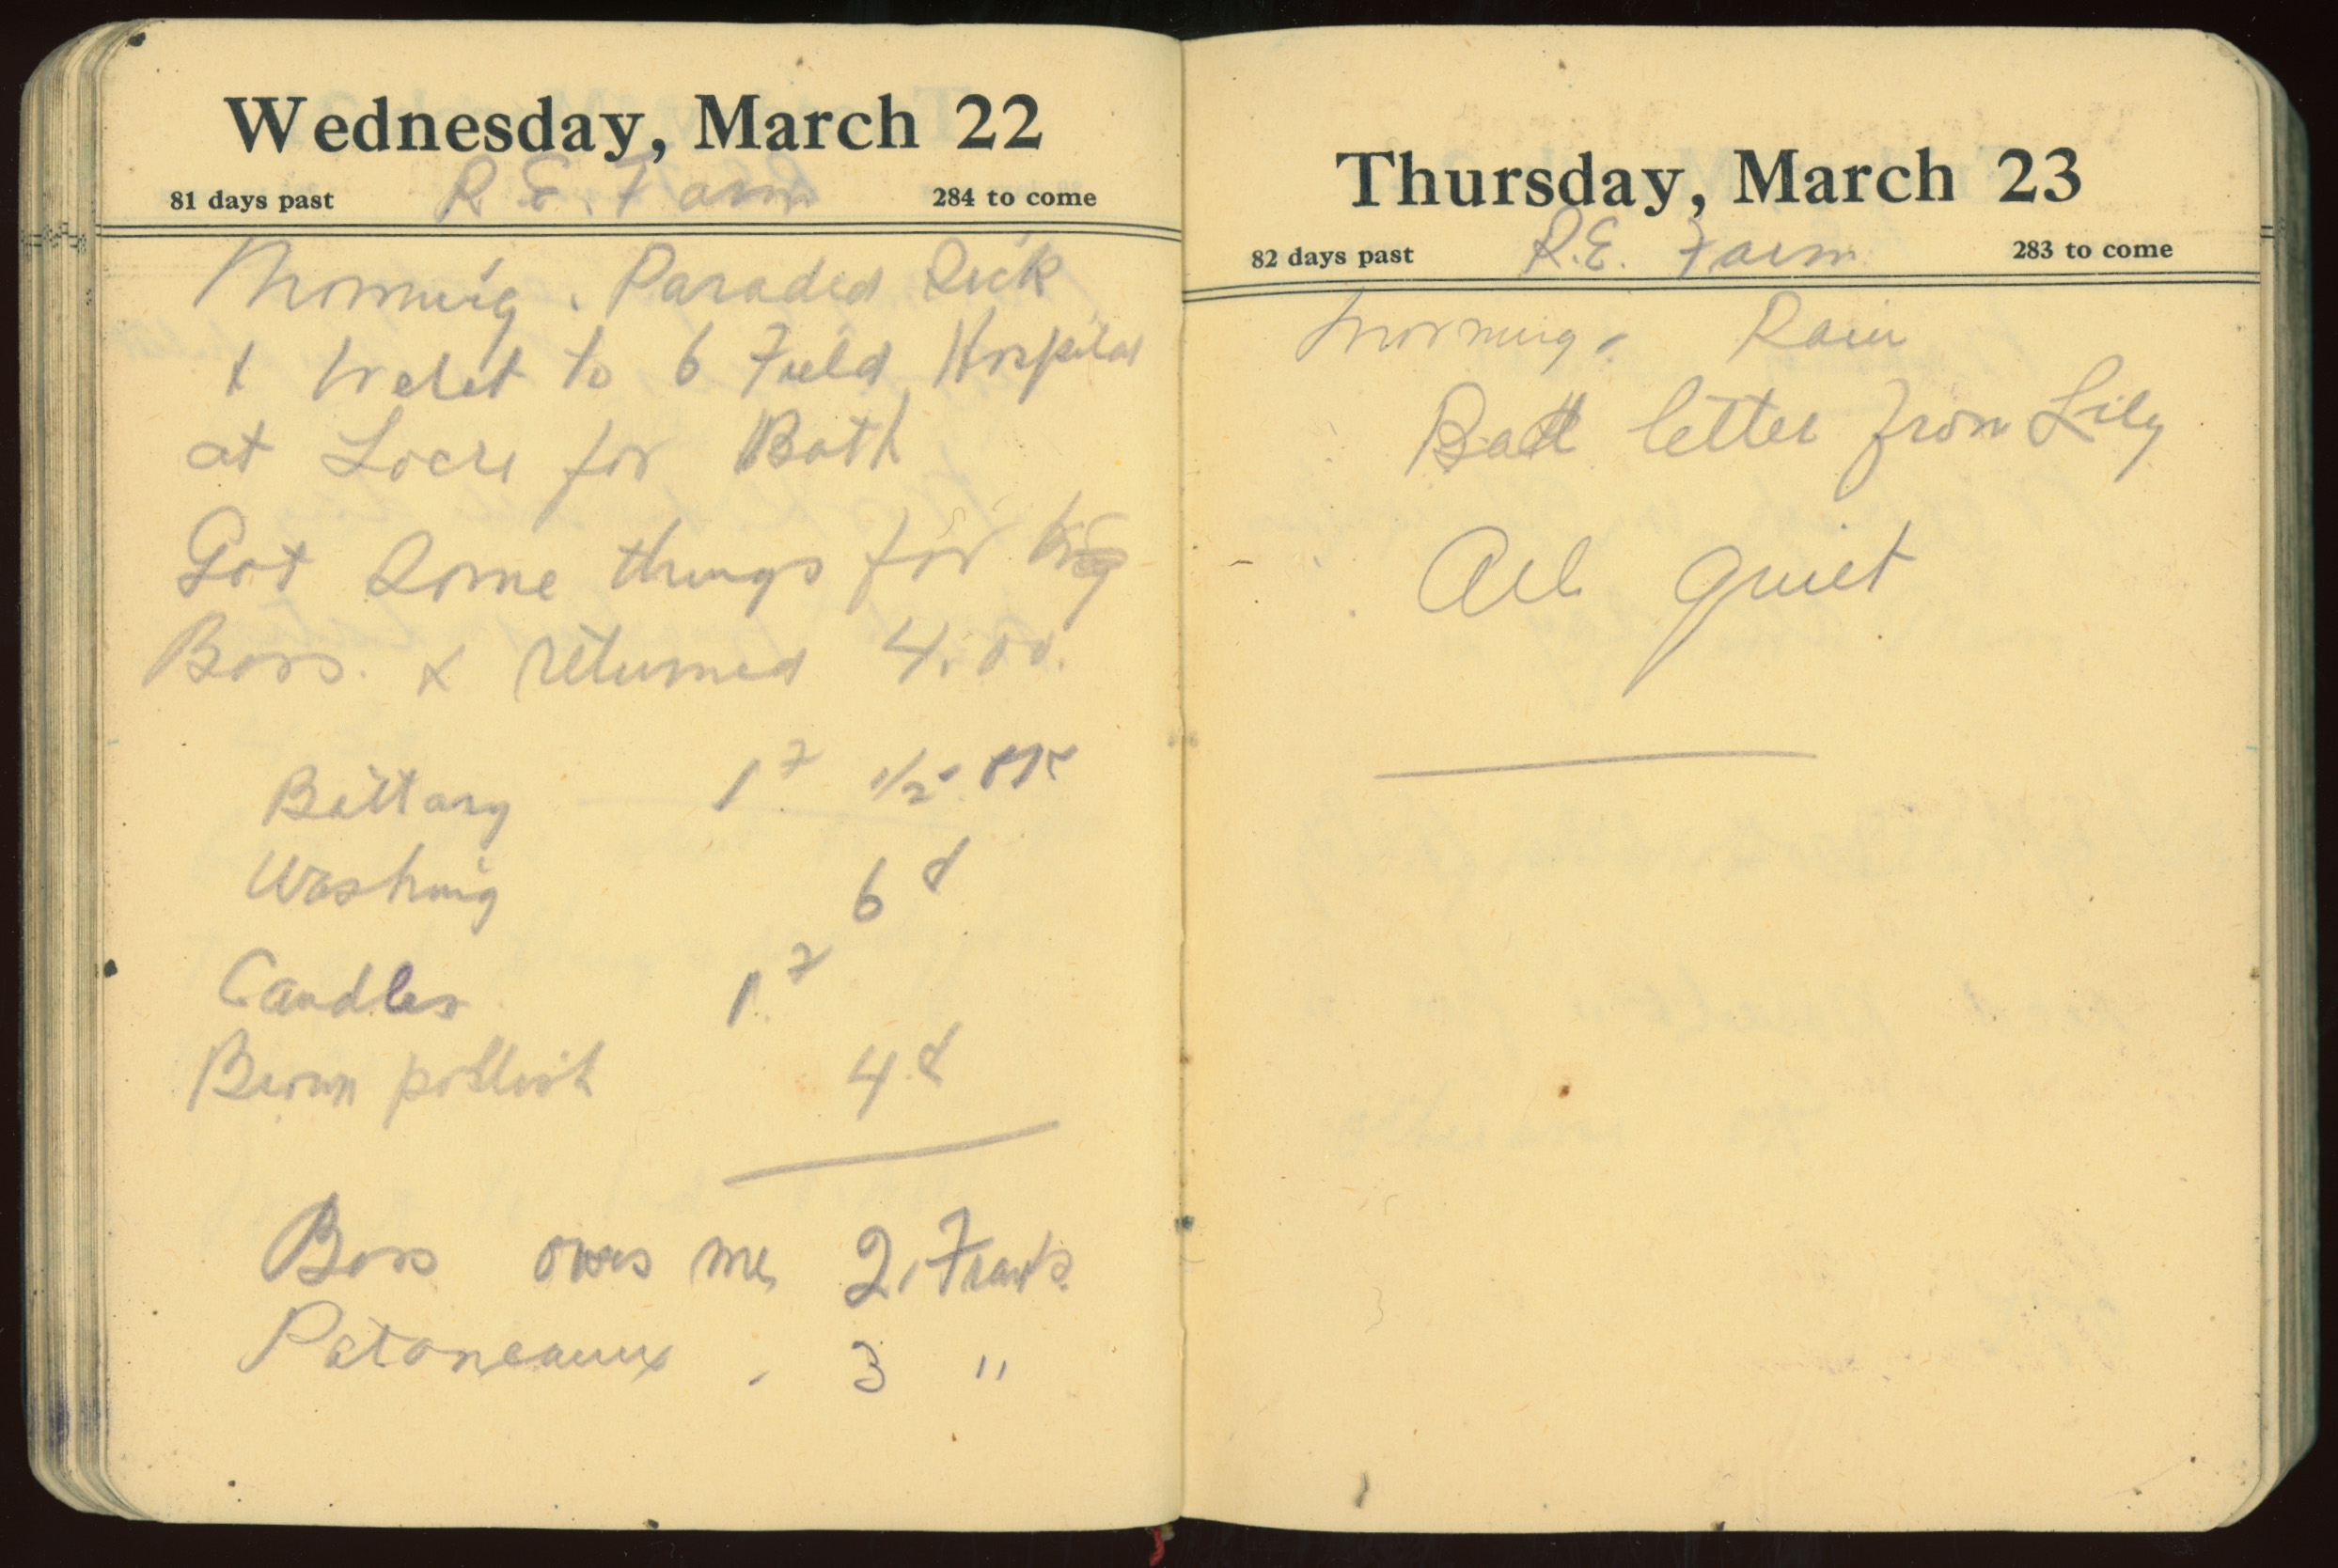 Wednesday, March 22
81 days past R. E. Farm 284 to come
Morning. Paraded Sick
& Went to 6 Field Hospital
at Locre for Bath
Got Some things for
Boss. & returned 4.00.
Battary 1 F 1/2
Washing 6 d
Candles 1 F
Brown pollish 4 d
Boss owes me 2, Franks
3 "
Thursday, March 23
82 days past R.E. Farm 283 to come
Morning. Rain
Bad letter from Lily
All quiet